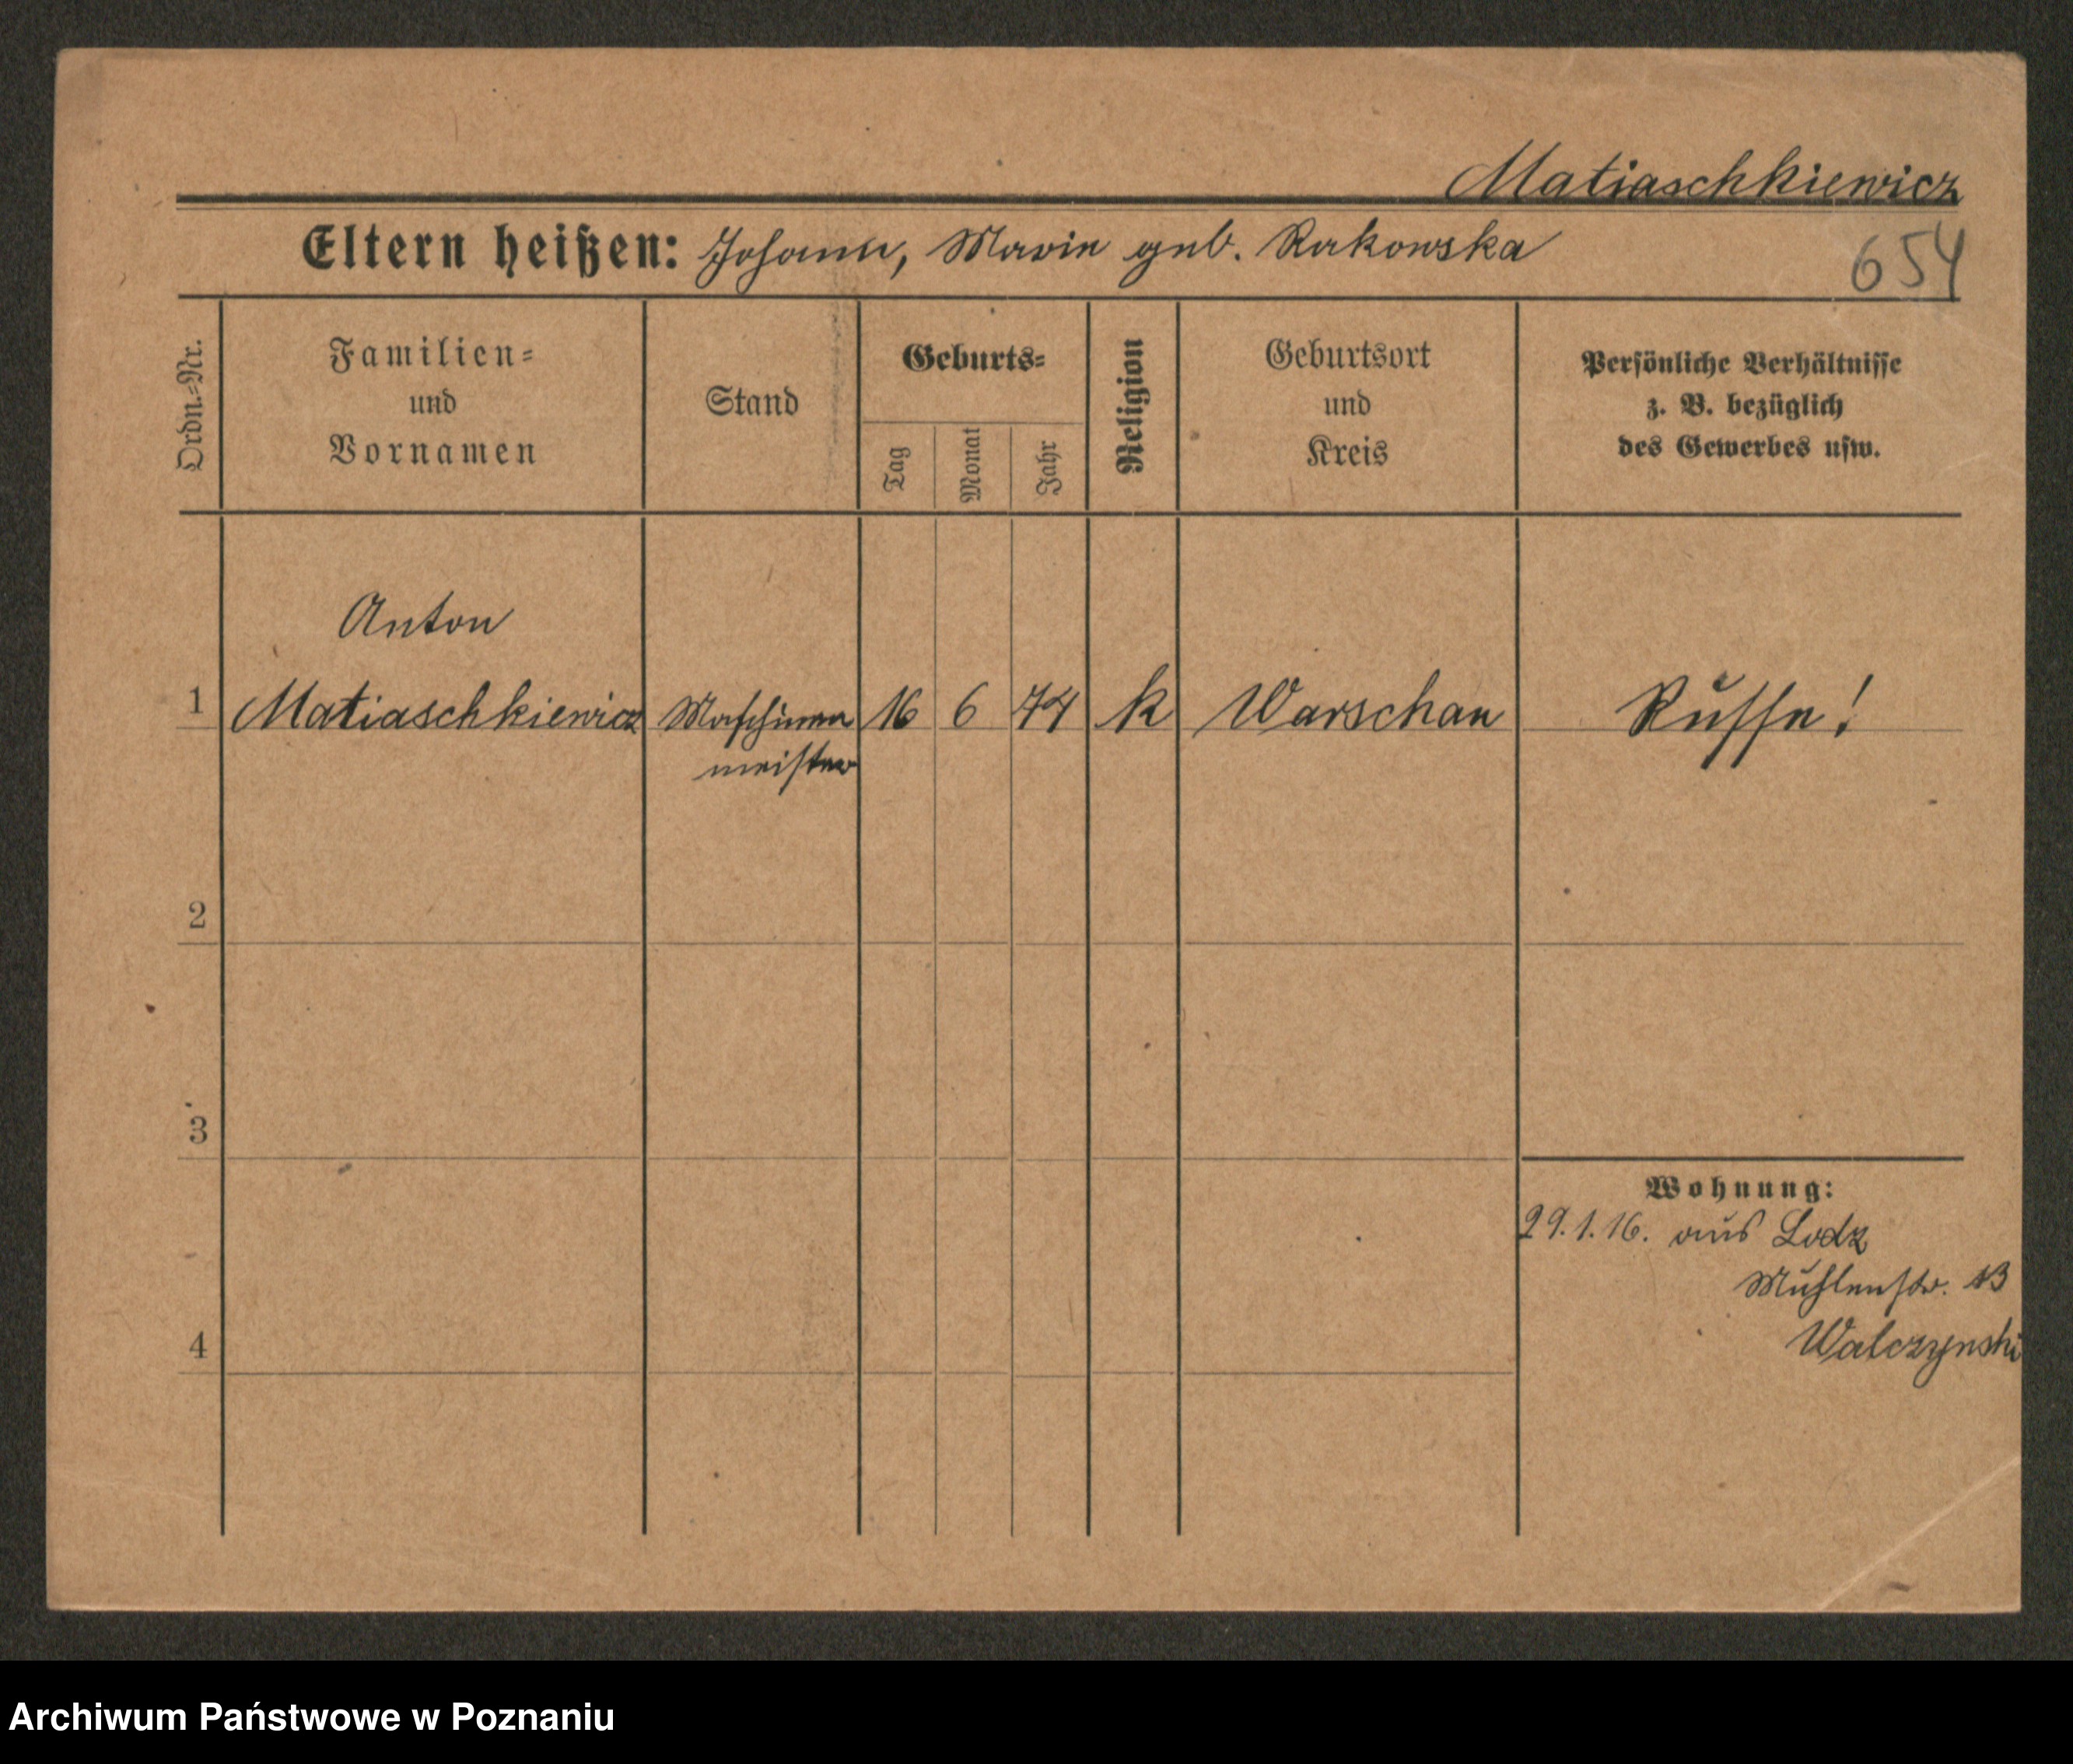 Matiaschkiewicz
Eltern heißen: Johann, Marie geb. Rakowska
654
Ordn.=Nr.
Familien=
und
Vornamen
Stand
Geburts=
Tag
Monat
Jahr
Religion
Geburtsort
und
Kreis
Persönliche Verhältnisse
z. B. bezüglich
des Gewerbes usw.
Anton
1 Matiaschkiewicz Maschinen 16 6 74 k Warschau Russe!
meister
2
3
Wohnung:
29.1.16. aus Lodz
Mühlenstr. 13
4
Walczynski
Archiwum Państwowe w Poznaniu